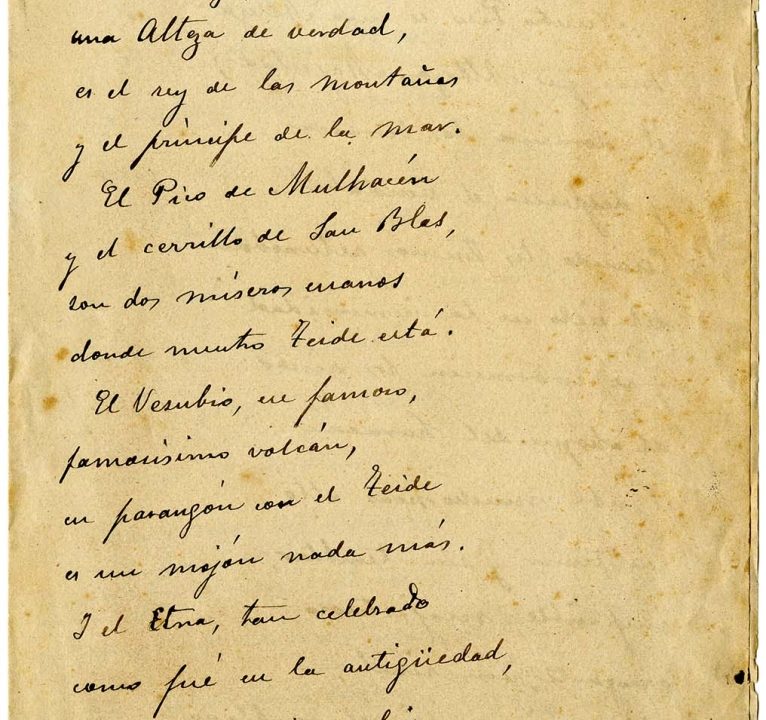 una Alteza de verdad,
es el rey de las montañas
y el príncipe de la mar.
El Pico de Mulhacén
y el cerrillo de San Blas,
son dos míseros enanos
donde nuestro Teide está.
El Vesubio, ese famoso,
famosísimo volcán,
en parangón con el Teide
es un mojón nada más.
I el Etna, tan celebrado
como fué en la antigüedad,